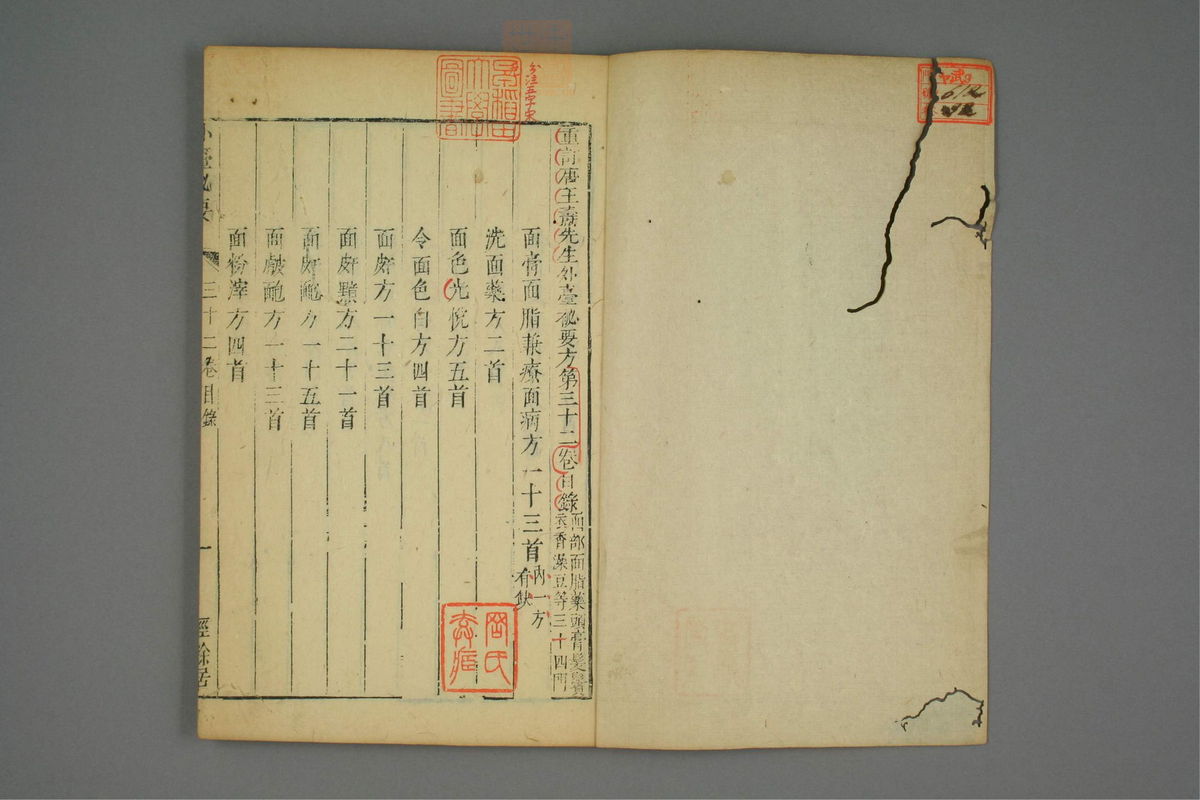 重訂唐王燾先生外臺秘要方第三十二卷目錄面部面脂藥頭膏髮鬢
衣香澡豆等三十四門
面膏面脂兼療面病方一十三首內一方
有缺
洗面藥方二首
面色光悅方五首
令面色白方四首
面皯方一十三首
面皯䵳方二十一首
面皯皰方一十五首
面皶皰方一十三首
面粉滓方四首
外臺秘要
三十二卷目錄
一
經餘居
早稻田大學圖書